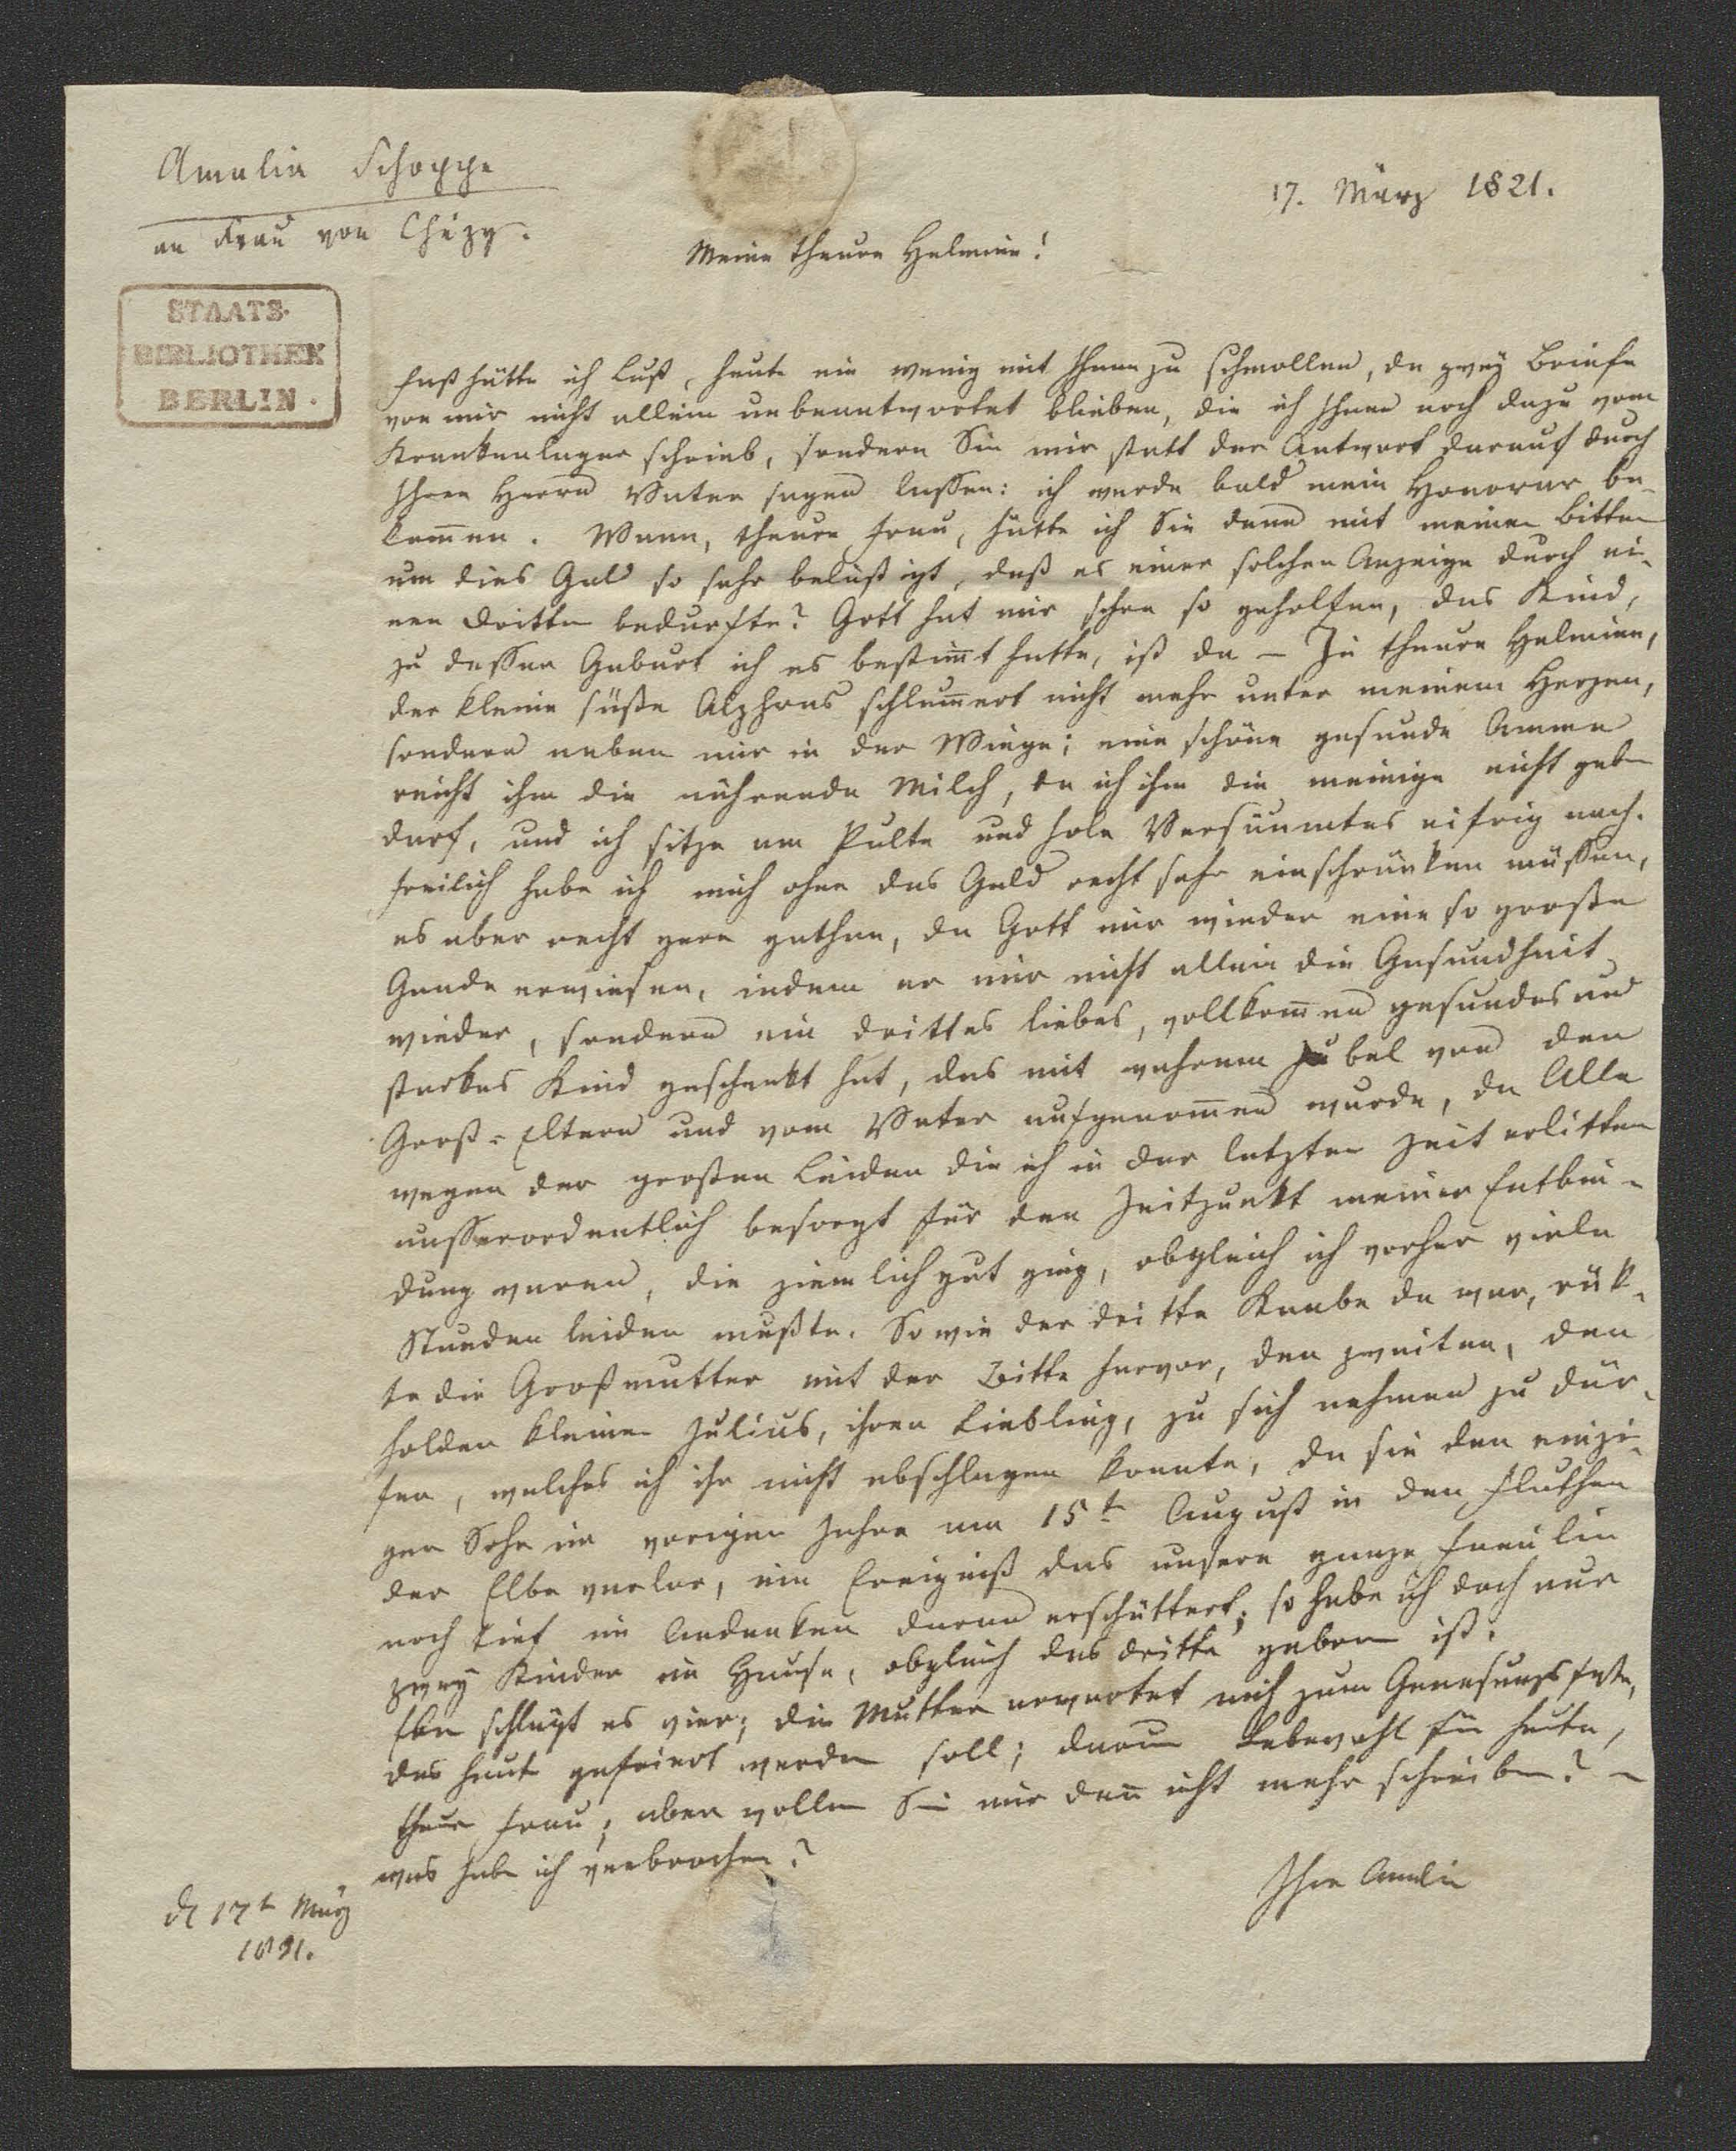 Amalia Schoppe
an Frau von Chézy.
17. März 1821.
Meine theure Helmine!
STAATS-
BIBLIOTHEK
BERLIN.
Fast hätte ich Lust, heute ein wenig mit Ihnen zu schmollen, da zwey Briefe
von mir nicht allein unbeantwortet blieben, die ich Ihnen noch dazu vom
Krankenlager schrieb, sondern Sie mir statt der Antwort darauf durch
Ihren Herrn Vater sagen lassen: ich werde bald mein Honorar be-
kom̄en. Wann, theure Frau, hätte ich Sie denn mit meinen Bitten
um dies Geld so sehr belästigt, daß es einer solchen Anzeige durch ei-
nen Dritten bedurfte? Gott hat mir schon so geholfen, das Kind,
zu dessen Geburt ich es bestim̄t hatte, ist da – Ja theure Helmine,
der kleine süße Alphons schlum̄ert nicht mehr unter meinem Herzen,
sondern neben mir in der Wiege; eine schöne gesunde Amme
reicht ihm die nährende Milch, da ich ihm die meinige nicht geben
darf, und ich sitze am Pulte und hole Versäumtes eifrig nach.
Freilich habe ich mich ohne das Geld recht sehr einschränken müssen,
es aber recht gern gethan, da Gott mir wieder eine so große
Gnade erwiesen, indem er mir nicht allein die Gesundheit
wieder, sondern ein drittes liebes, vollkom̄en gesundes und
starkes Kind geschenkt hat, das mit wahrem Jubel von den
Groß-Eltern und vom Vater aufgenom̄en wurde, da Alle
wegen der großen Leiden die ich in der letzten Zeit erlitten
ausserordentlich besorgt für den Zeitpunkt meiner Entbin-
dung waren, die ziemlich gut ging, obgleich ich vorher viele
Stunden leiden mußte. So wie der dritte Knabe da war, rük-
te die Großmutter mit der Bitte hervor, den zweiten, den
holden kleinen Julius, ihren Liebling, zu sich nehmen zu dür-
fen, welches ich ihr nicht abschlagen konnte, da sie den einzi-
gen Sohn im vorigen Jahre am 15t August in den Fluthen
der Elbe verlor, ein Ereigniß das unsere ganze Familie
noch tief im Andenken daran erschüttert; so habe ich doch nur
zwey Kinder im Hause, obgleich das dritte geboren ist.
Eben schlägt es vier; die Mutter erwartet mich zum Genesungsfeste,
das heute gefeiert werden soll; darum Lebewohl für heute,
theure Frau; aber wollen Sie mir den̄ nicht mehr schreiben? –
was habe ich verbrochen?
Ihre Amalie
d 17t März
1821.